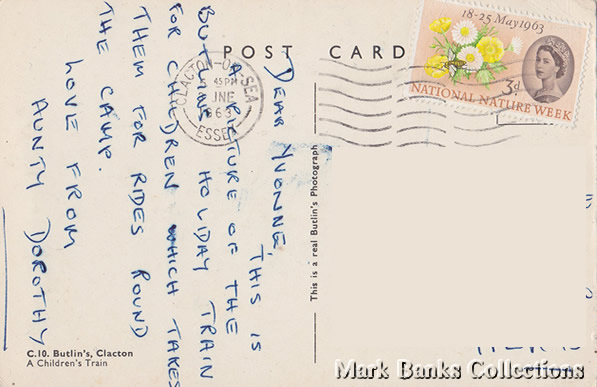 POST CARD
18-25 May 1963
3d
NATIONAL NATURE WEEK
CLACTON-ON-SEA
45 PM
JNE
1963
ESSEX
DEAR YVONNE,
THIS IS
A PICTURE OF THE
BUTLINS HOLIDAY TRAIN
FOR CHILDREN WHICH TAKES
THEM FOR RIDES ROUND
THE CAMP.
LOVE FROM
AUNTY DOROTHY
This is a real Butlin's Photograph
C.10. Butlin's, Clacton
A Children's Train
Mark Banks Collections